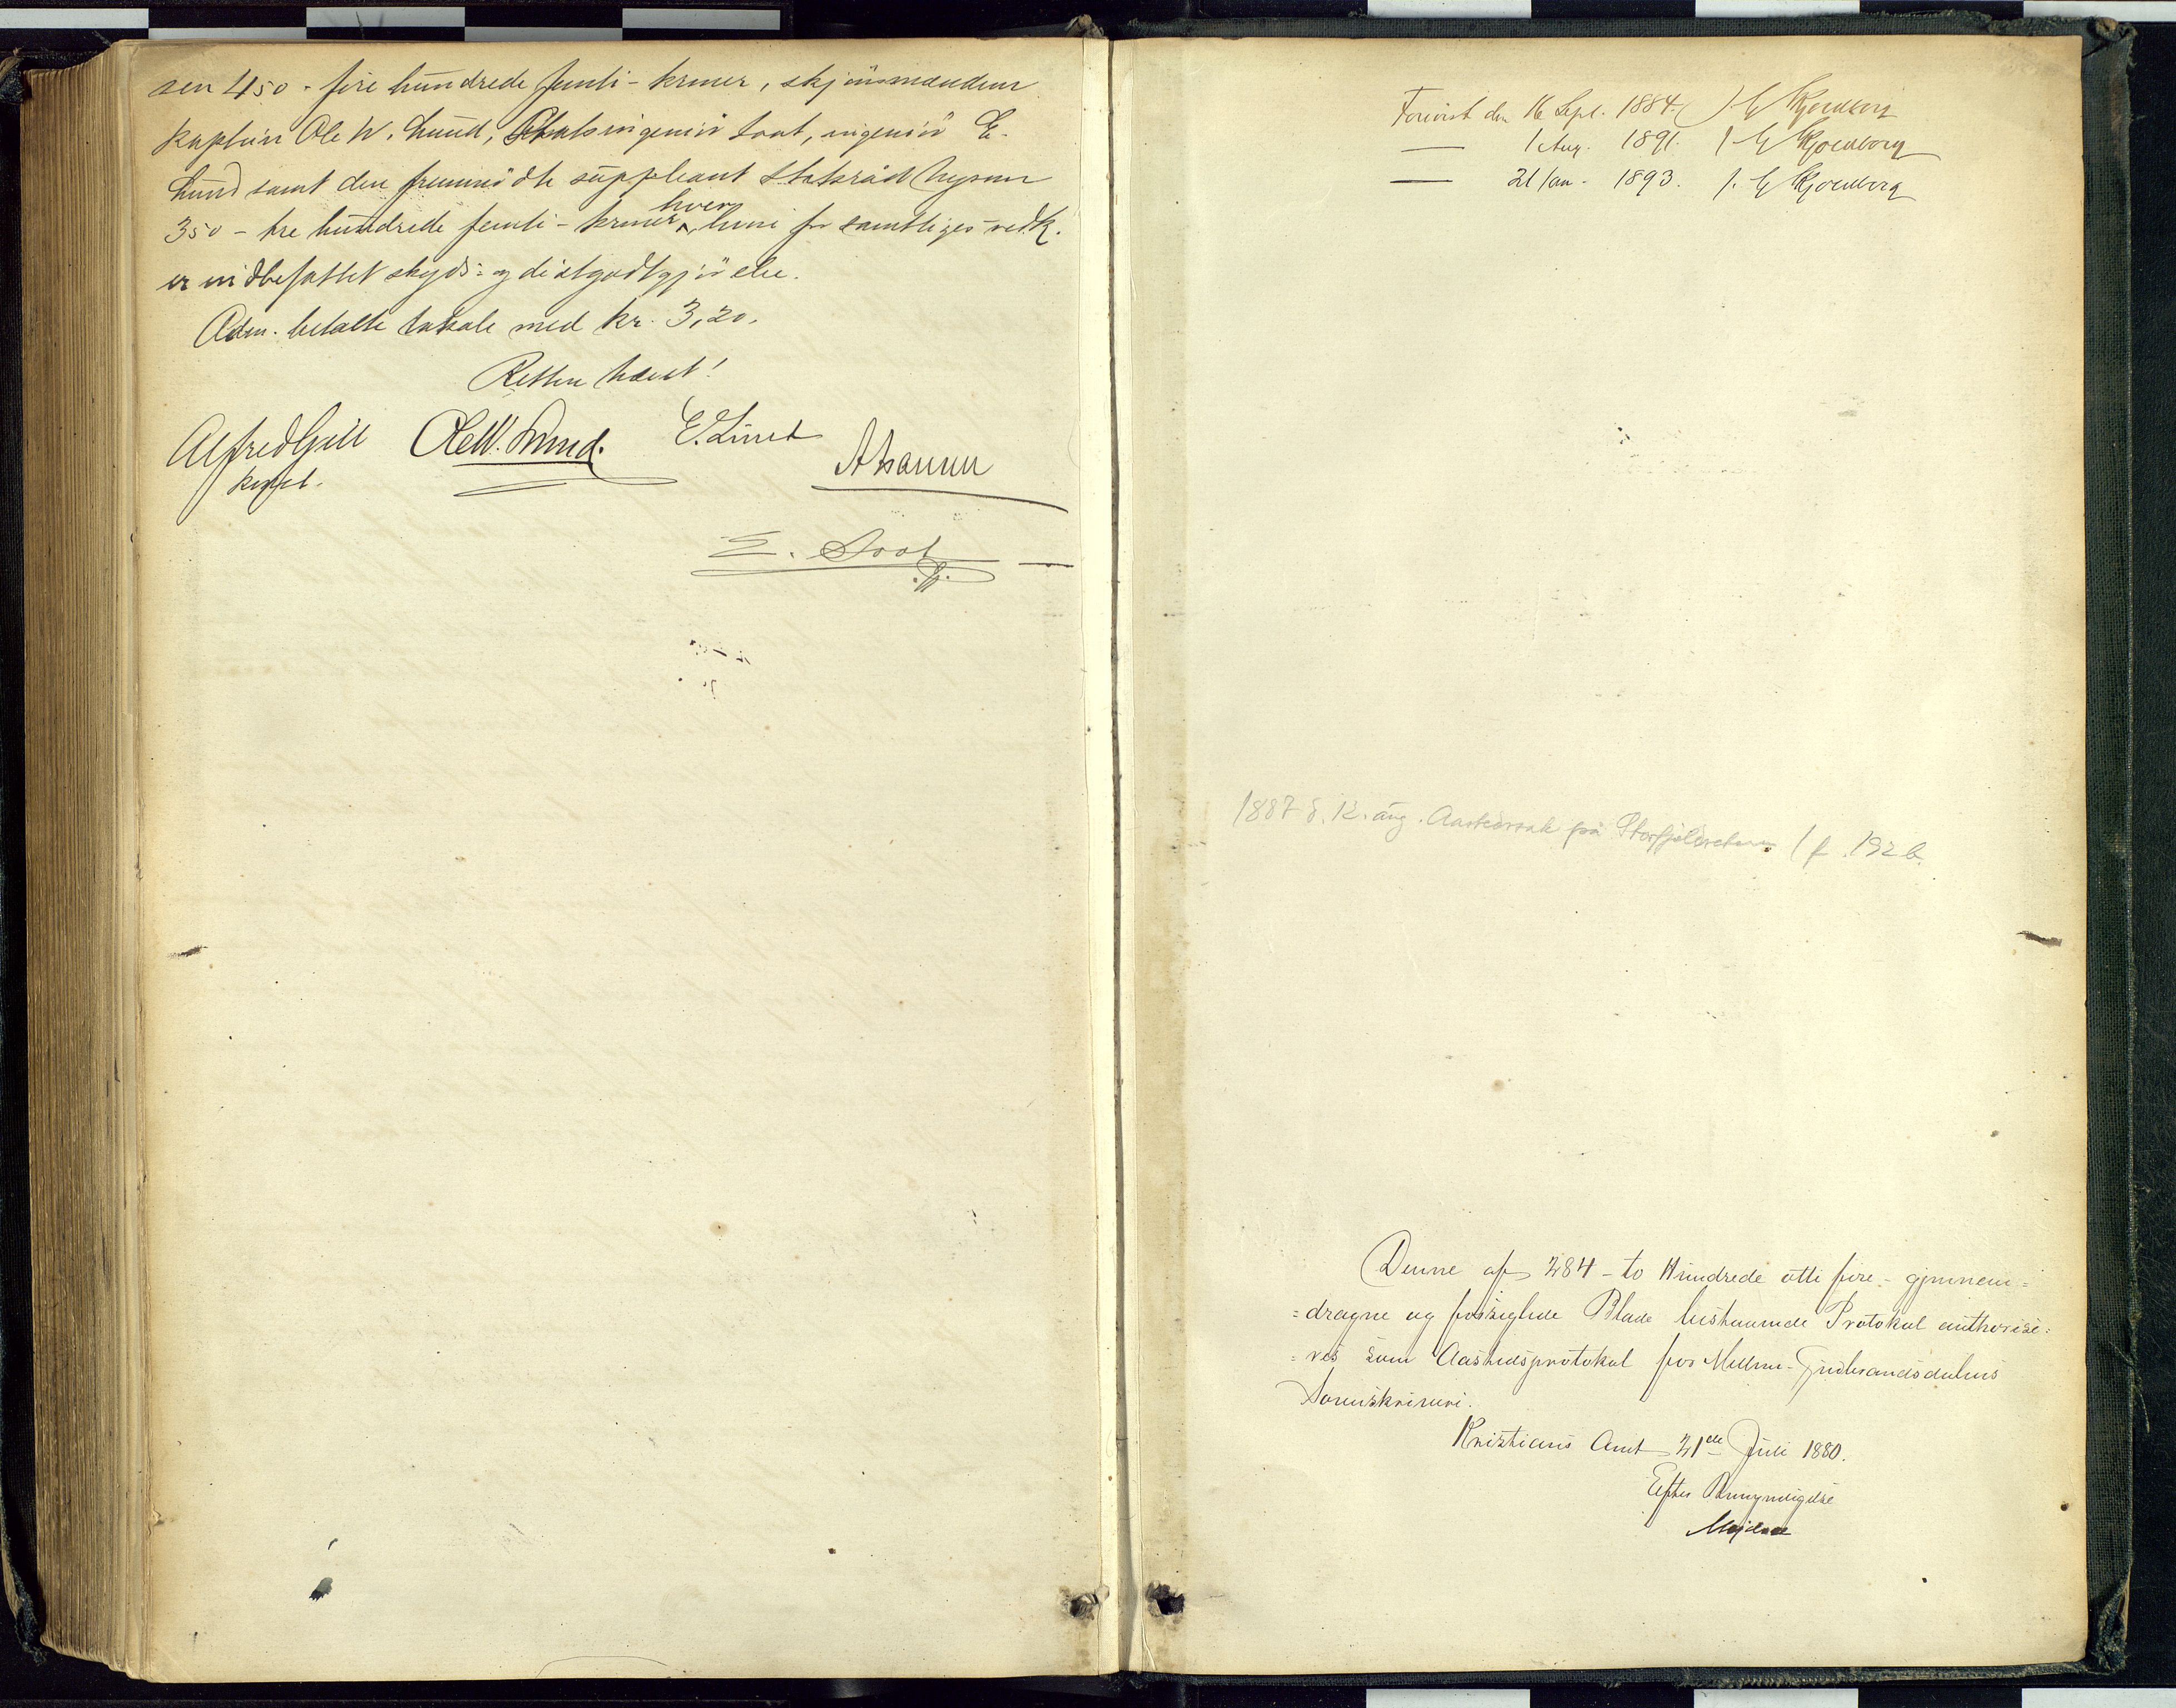 sen 450 - fire hundrede femti - kroner, skjönsmændene
kaptein Ole W. Lund, Statsingeniör Soot, ingeniör E.
Lund samt den fremmödte suppleant Statsråd Nysom
350 - tre hundrede femti - kroner hver, heri for samtliges vedk.
er indbefattet skyds- og diætgodtgjörelse.
Adm. betalte lokale med kr. 3,20.
Retten hævet!
Alfred Ole W. Lund. E. Lund
konst.
E. Soot
Forevist den 16 Sept. 1884.
— 1 Aug. 1891.
— 21 Jan. 1893.
1887 d. 12. aug. Aastedssak på f. 192 b.
Denne af 284 - to Hundrede otti fire - gjennem=
=dragne og forseglede Blade bestaaende Protokol authorise=
=res som Aastedsprotokol for Mellem-Gudbrandsdalens
Sorenskriveri.
Kristians Amt 21de Juli 1880.
Efter Bemyndigelse